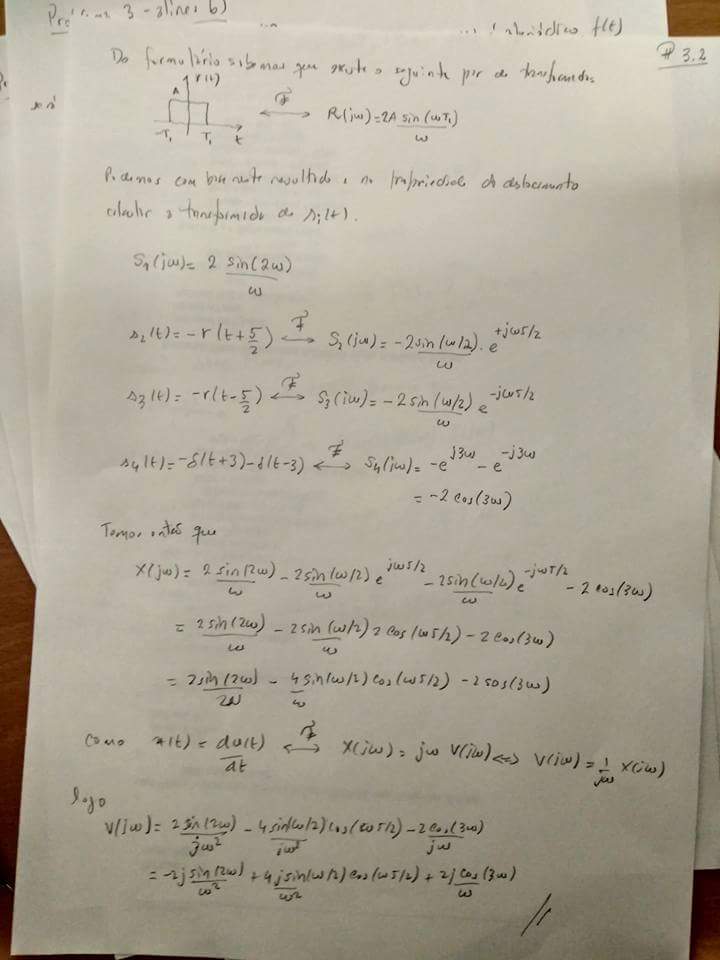 3 - alínea b)
f(t)
# 3.2
Do formulário sabemos que existe o seguinte par de transformadas
r(t)
A
-T₁ T₁ t
ℱ
⟷ R(jω)=2A sin(ωT₁)/ω
Podemos com base neste resultado e na propriedade do deslocamento
calcular a transformada de sᵢ(t).
S₁(jω)= 2 sin(2ω)/ω
s₂(t)=-r(t+5/2) ⟷ℱ S₂(jω)= -2sin(ω/2)/ω . e^{+jω5/2}
s₃(t)= -r(t-5/2) ⟷ℱ S₃(jω)= -2sin(ω/2)/ω e^{-jω5/2}
s₄(t)=-δ(t+3)-δ(t-3) ⟷ℱ S₄(jω)= -e^{j3ω} -e^{-j3ω}
= -2cos(3ω)
Temos então que
X(jω)= 2sin(2ω)/ω - 2sin(ω/2)/ω e^{jω5/2} - 2sin(ω/2)/ω e^{-jω5/2} - 2cos(3ω)
= 2sin(2ω)/ω - 2sin(ω/2)/ω 2cos(ω5/2) - 2cos(3ω)
= 2sin(2ω)/2ω - 4/ω sin(ω/2)cos(ω5/2) - 2cos(3ω)
Como x(t) = dv(t)/dt ⟷ℱ X(jω)= jω V(jω) ⇔ V(jω)= 1/jω X(jω)
logo
V(jω)= 2sin(2ω)/jω² - 4sin(ω/2)cos(ω5/2)/jω² - 2cos(3ω)/jω
= -2j sin(2ω)/ω² + 4j sin(ω/2)cos(ω5/2)/ω² + 2j cos(3ω)/ω